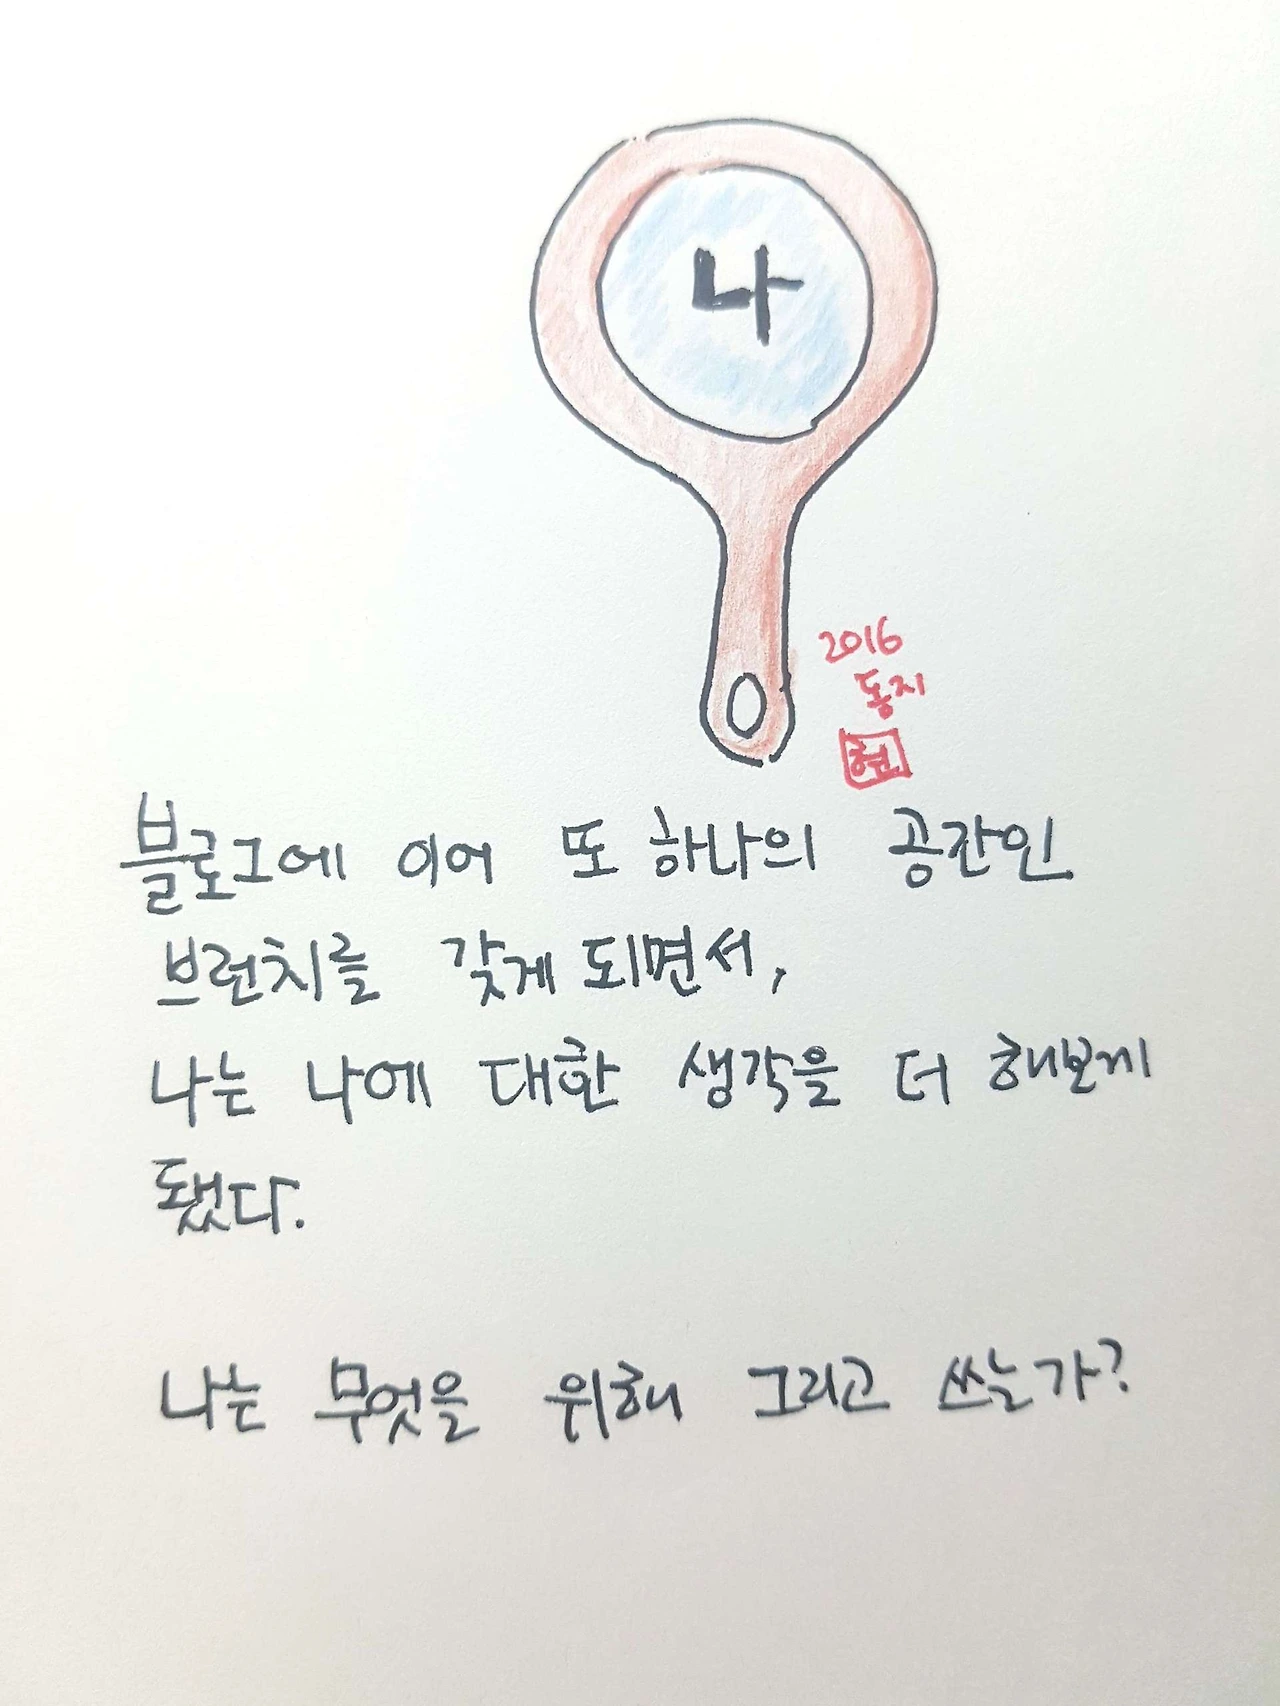 나
2016
동지
현
블로그에 이어 또 하나의 공간인
브런치를 갖게 되면서,
나는 나에 대한 생각을 더 해보게
됐다.
나는 무엇을 위해 그리고 쓰는가?